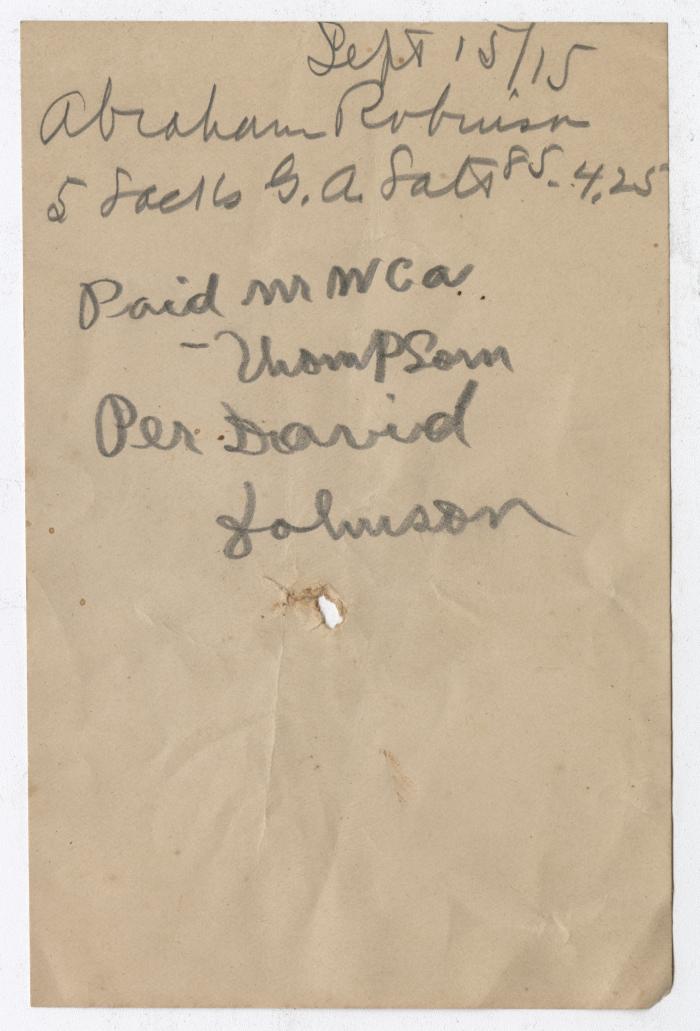 Sept 15/15
Abraham Robinson
5 Sacks G. A. Salt 85. 4.25
Paid Mr W Ca
- Thompson
Per David
Johnson